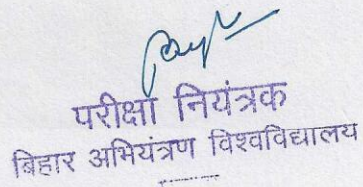 परीक्षा नियंत्रक
बिहार अभियंत्रण विश्वविद्यालय